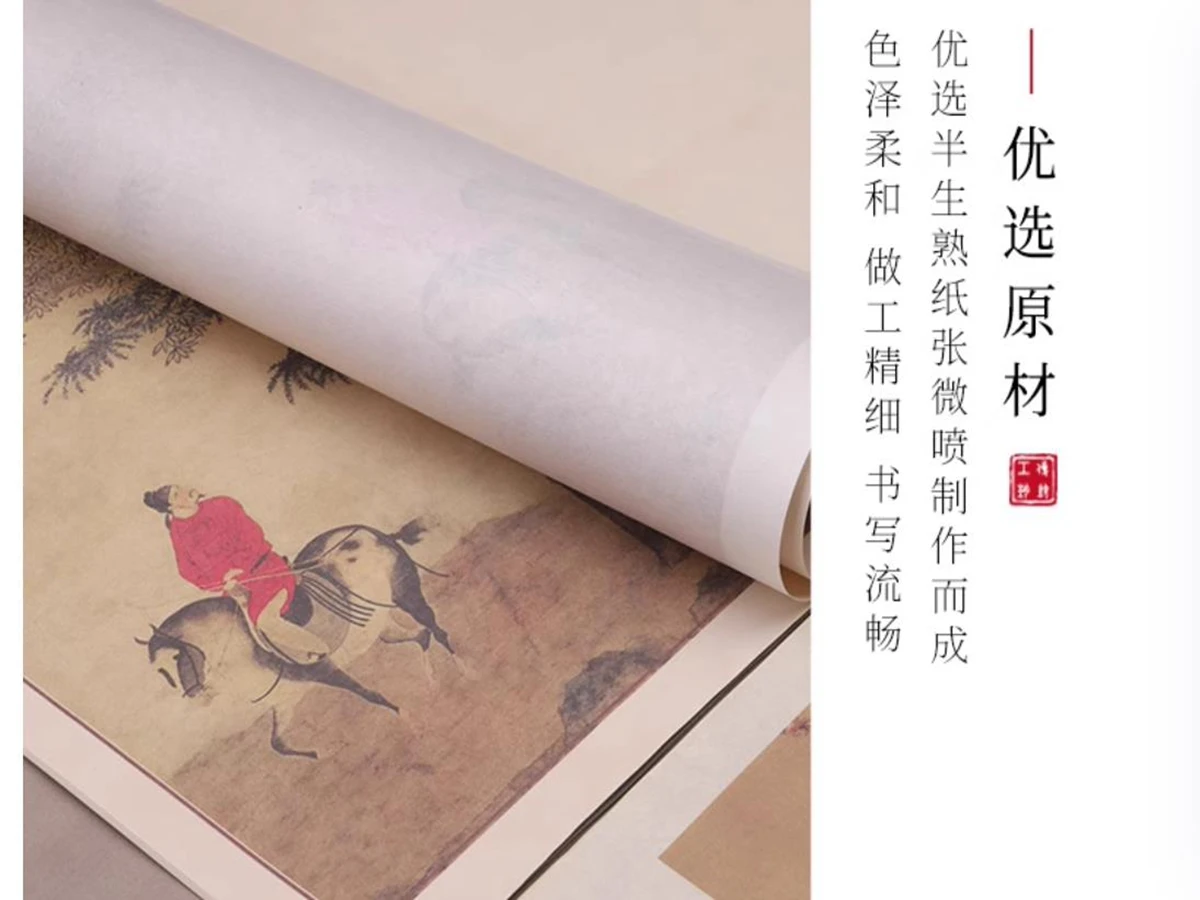 优选原材
优选半生熟纸张微喷制作而成
色泽柔和 做工精细 书写流畅